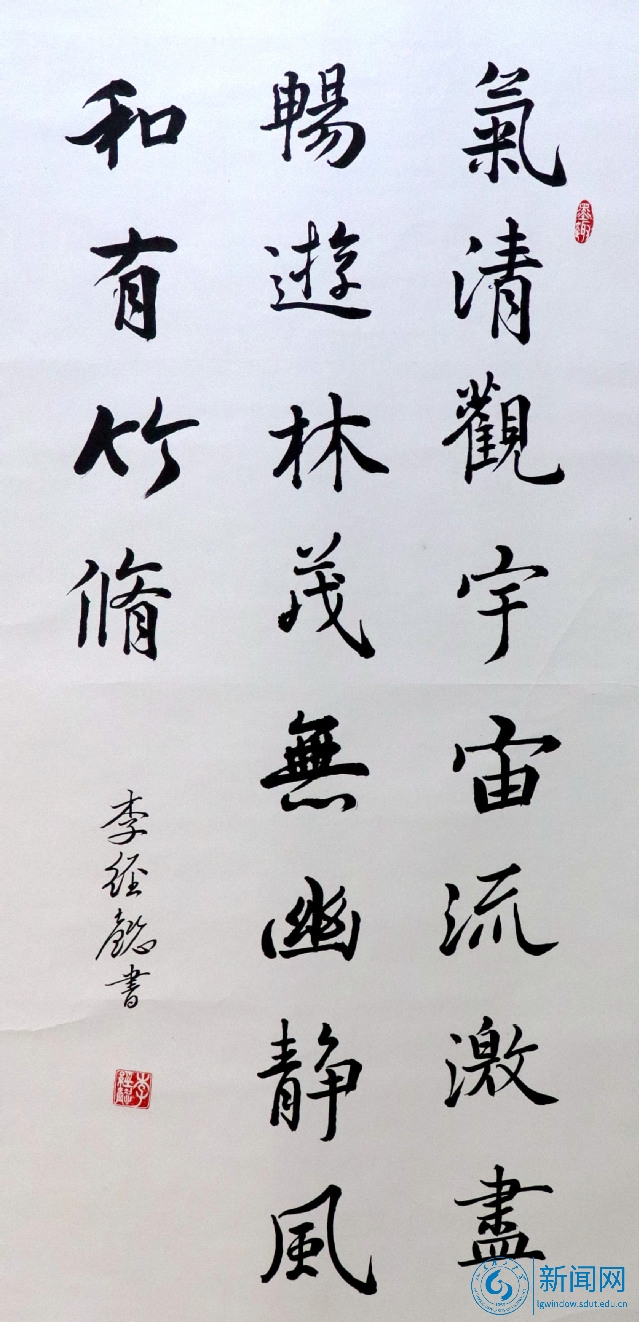 氣清觀宇宙流激盡
暢遊林茂無幽静風
和有竹脩
李经懿書
墨趣
新闻网
lgwindow.sdut.edu.cn